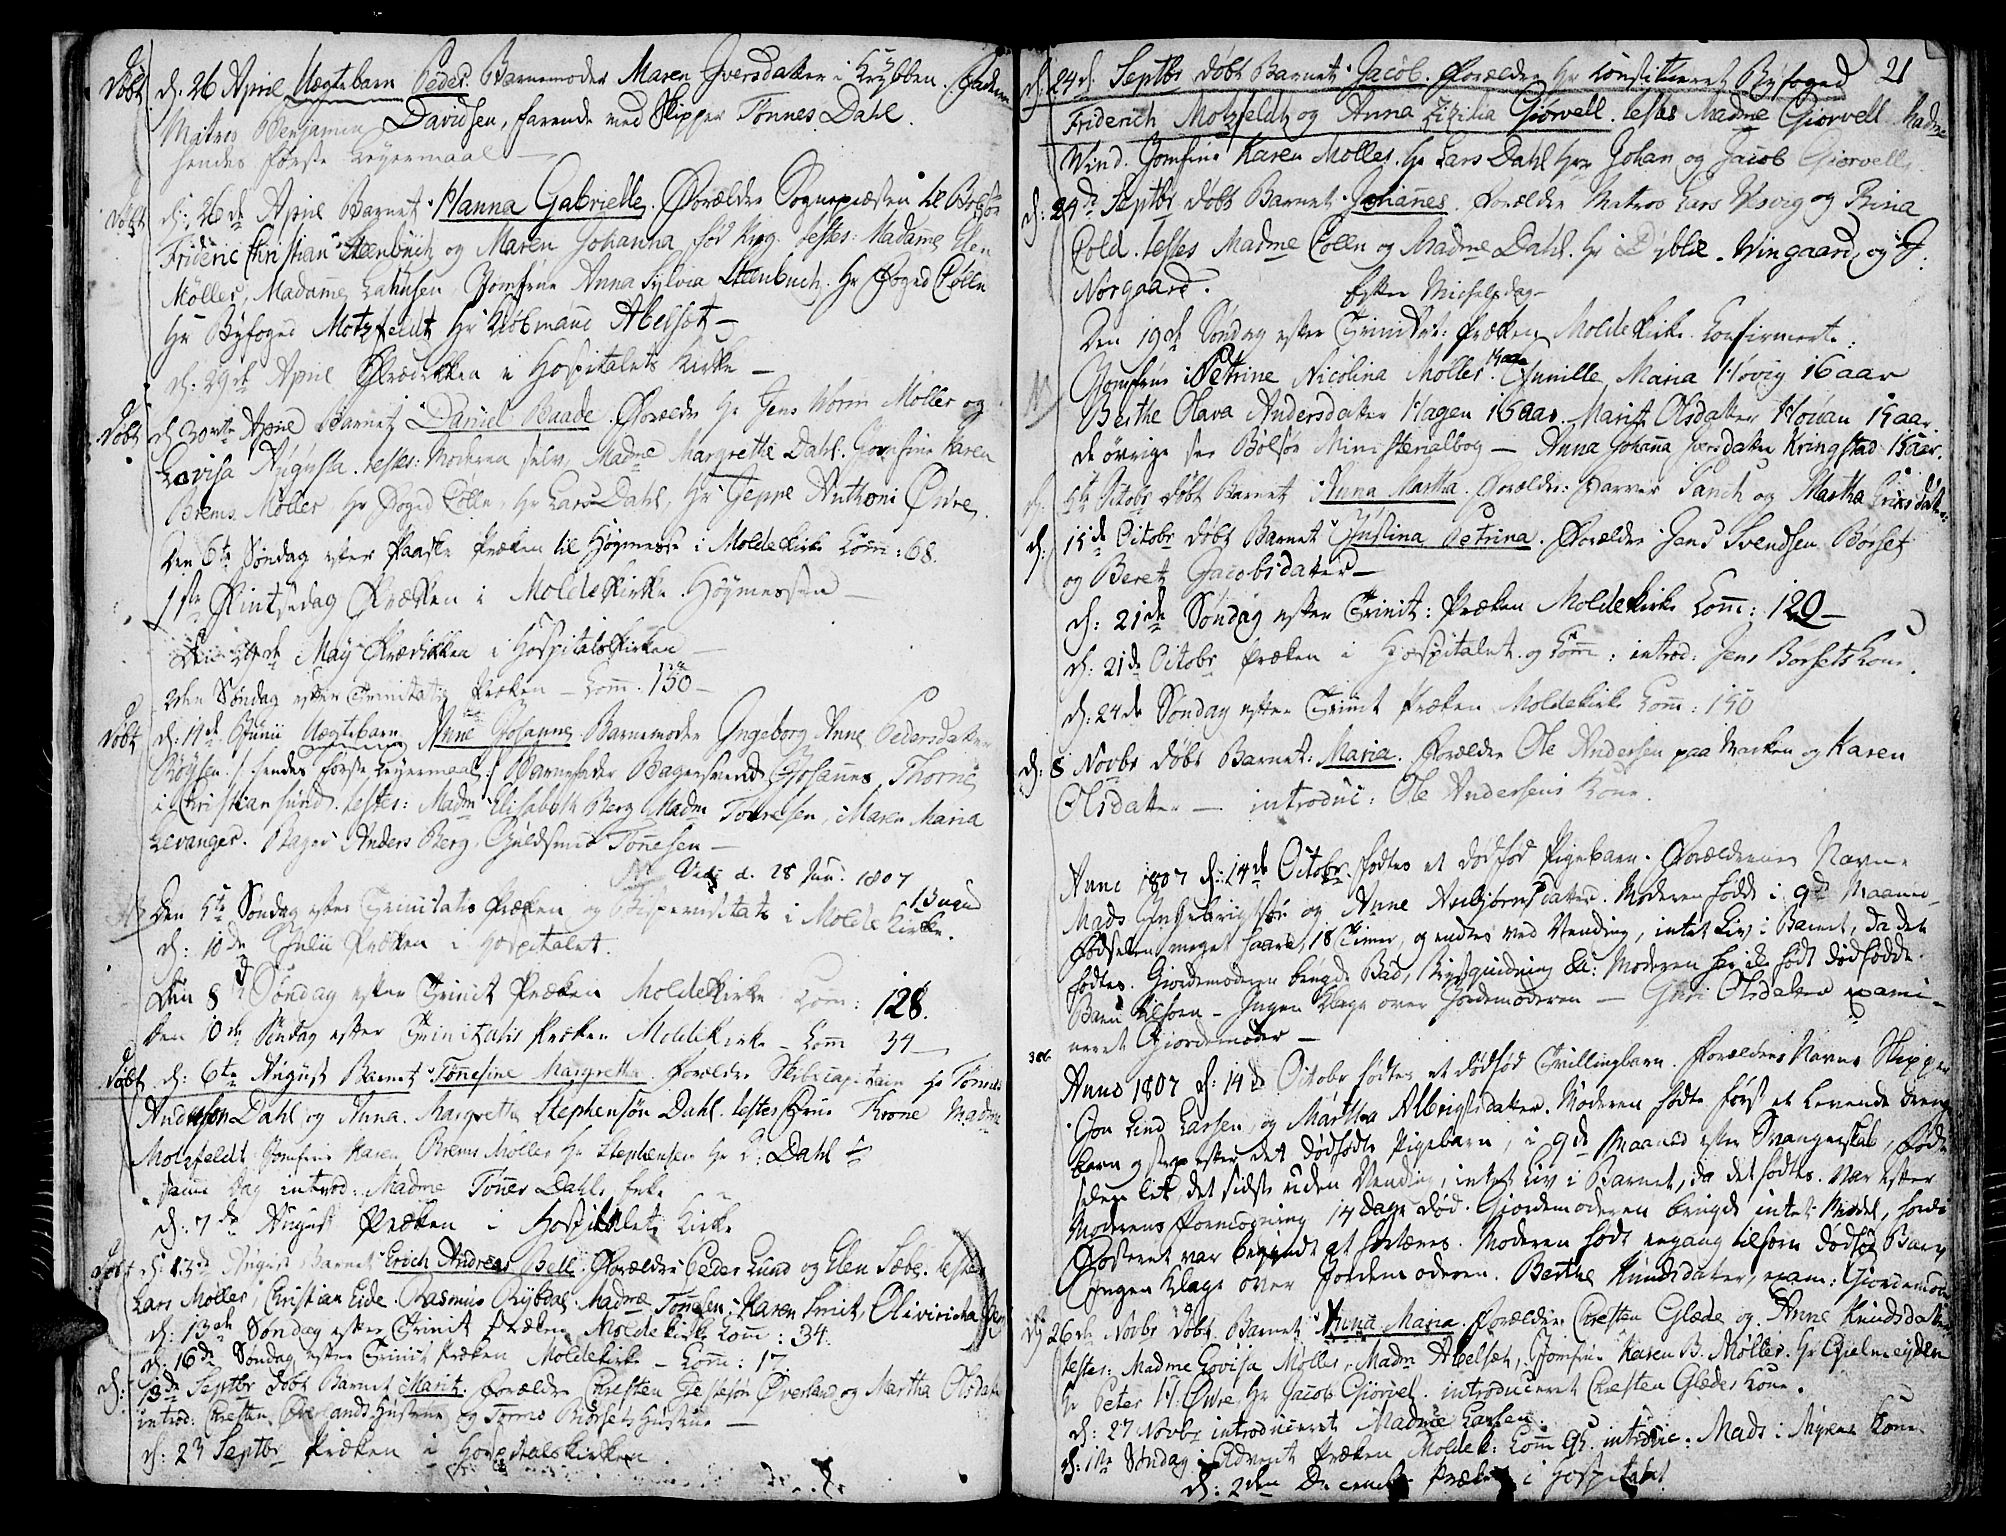 Døbt d. 26 April Uægtebarn Peder Barnemoder Maren Iversdatter i Krybben
Matros Benjamin Davidsen, farende med Skipper Tönnes Dahl.
hendes förste Leyermaal —
Døbt d: 26de April Barnet Hanna Gabrielle. Forældre Sognepræsten til Bolsöe
Frideric Christian Steenbuch og Maren Johanna född Krog. testes: Madame Elen
Möller, Madame Jomfrue Anna Sylvia Steenbuch. Hr Foged Cölln
Hr Byfoged Motzfeldt Hr Kiöbmand Abelset —
d. 29de April Prædikken i Hospitalets Kirke —
Døbt d. 30vte April Barnet Daniel Baade. Forældre Hr Jens Worm Möller og
Lovisa Augusta. testes: Moderen selv, Madme Margrethe Dahl. Jomfrue Karen
Brems Möller, Hr Foged Cölln, Hr Lars Dahl, Hr Jeppe Anthoni Övre.
Den 6te Søndag efter Paaske Præken til Högmesse i Molde Kirke Com: 68.
1ste Pintsedag Præken i Molde Kirke. Höymessen —
Den 24de May Prædikken i Hospitalskirken —
2den Søndag efter Trinitatis Præken — Com. 130 —
Døbt d: 14de Junii Uægtebarn Anne Johanne Barnemoder Ingeborg Anne Pedersdatter
Röysen. /: hendes förste Leyermaal :/ Barnefader Bagersvend Johannes Thorne
i Christiansund. testes: Madm Elisabeth Berg Madm Tönnesen, Maren Maria
Levanger. Bager Anders Berg, Guldsmed Tönesen —
NB Vids d. 28 Jun. 1807
Den 5te Søndag efter Trinitatis Præken og Bispevisitats i Molde Kirke.
d: 10de Julii Præken i Hospitalet.
Den 8de Søndag efter Trinit Præken Molde Kirke Com: 128.
Den 10de Søndag efter Trinitatis Præken Molde Kirke — Com 34 —
Døbt d: 6te August Barnet Tönnesine Margretha. Forældre Skibscaptain Hr Tönnes
Andresen Dahl og Anna Margrethe Stephensön Dahl. testes Frue Krone Madme
Motzfeldt Jomfrue Karen Brems Möller Hr Stephensen Hr L: Dahl
samme Dag introd: Madme Tönnes Dahls
d: 7de August Præken i Hospitalets Kirke
Døbt d: 13de August Barnet Erich Andreas Bell. Forældre Peder Lund og Elen Sæbe. testes
Lars Möller, Christian Eide Rasmus Rÿbdal Madme Tönesen, Karen Smit,
d: 13de Søndag efter Trinit Præken Molde Kirke Com: 34.
d. 16de Søndag efter Trinit Præken Molde Kirke — Com: 17
d: 13de Septbr döbt Barnet Marit. forældre Christen Överland og Martha Olsdatter
introd: Christen Överlands Hustrue og Hustrue —
d: 23 Septbr Præken i Hospitalskirken

21
d: 24d. Septbr döbt Barnet Jacob. forældre Hr Constitueret Byfoged
Friderich Motzfeldt og Anna Zizilia Giörvell. testes Madme Giörvell Madme
Wind. Jomfrue Karen Möller. Hr Lars Dahl Hrr Johan og Jacob Giörvell.
d: 24de Septbr döbt Barnet Johannes. forældre Matros Lars og Rina
Cold. testes Madme Cölln og Madme Dahl. Hr Wingaard, og
Norgaard.
efter Michelsdag
Den 19de Søndag efter Trinitat: Præken Molde Kirke. Confirmerte:
Jomfrue Petrine Nicolina Möller. Gunille Maria Hövig 16 aar
Berthe Olava Andersdatter Hagen 16 aar. Marit Olsdatter Houan 15 aar.
de övrige see Bolsöe Ministerialbog — Anna Johana Iversdatter Kringstad 15 aar.
d: 5te Octobr döbt Barnet Anna Martha. forældre: Martha Erichsdatter.
d: 15de Octobr döbt Barnet Justina Petrina. forældre Jens Svendsen Börset
og Beret Jacobsdatter —
d: 21de Søndag efter Trinit: Præken Molde Kirke Com: 120 —
d: 21de Octobr Præken i Hospitalet og Com: introd: Jens Borsets Kone.
d: 24de Søndag efter Trinit Præken Molde Kirke Com: 150
d: 8 Novbr döbt Barnet: Maria. forældre Ole Andersen paa Marken og Karen
Olsdatter — introduc: Ole Andersens Kone.
Anno 1807 d: 14de Octobr. födtes et dödföd Pigebarn. Forældrenes Navne
Mads Ingebrigtsön og Anne Anbjörnsdatter. Moderen födte i 9de Maaned,
födselen meget haard, 18 Timer, og endtes ved Vending, intet Liv i Barnet, da det
födtes. Giordemoderen brugte Bad, &c: Moderen har ikke födt dödfödte
Barn tilforn — Ingen Klage over Jordemoderen — Guri Olsdatter exami-
neret Giordemoder —
Anno 1807 d: 14de Octobr födtes et dödföd Tvillingbarn. forældres Navne Skipper
Jon Lind Larsen, og Martha Albrigtsdatter. Moderen födte först et levende Drenge
barn og strax efter det dödfödte Pigebarn, i 9de Maaned efter Svangerskab, födte
det sidste uden Vending, intet Liv i Barnet, da det födtes. Var efter
Moderens Formodning 14 Dage död. Giordemoderen brugte intet Middel, fordi
Fosteret var begyndt at forraadnes. Moderen födt engang tilforn dödfödt Barn
Ingen Klage over Jordemoderen. Berthe Knudsdatter, exam: Giordemoder
d: 26de Novbr döbt Barnet Anna Maria. forældre Christen Glæde og Anne Knudsdatter
testes: Madme Lovisa Möller, Madm Abelset, Jomfrue Karen B. Möller. Hr
Hr Peter N. Övre Hr Jacob Giörvel. introduceret Christen Glædes Kone.
d: 27 Novbr introduceret Madme Larsen.
d: 1ste Søndag i Advent Præken Moldek: Com 95. introduc: Mads i Myren Kone
d: 2den December Præken i Hospitalet.